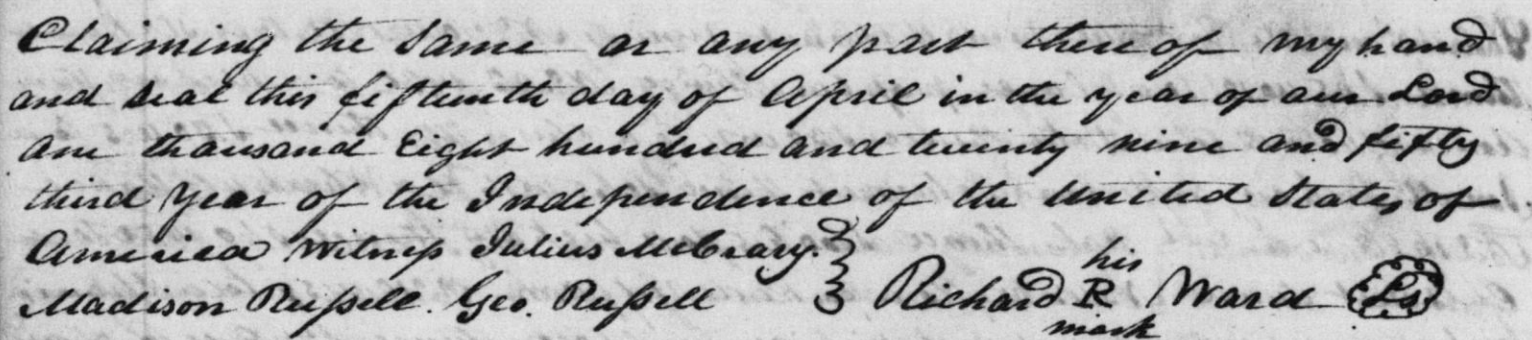 Claiming the same or any part thereof my hand
and seal this fifteenth day of April in the year of our Lord
one thousand Eight hundred and twenty nine and fifty
third year of the Independence of the United States of
America Witness Julius McCrary.
Madison Russell. Geo. Russell
Richard his R mark Ward LS